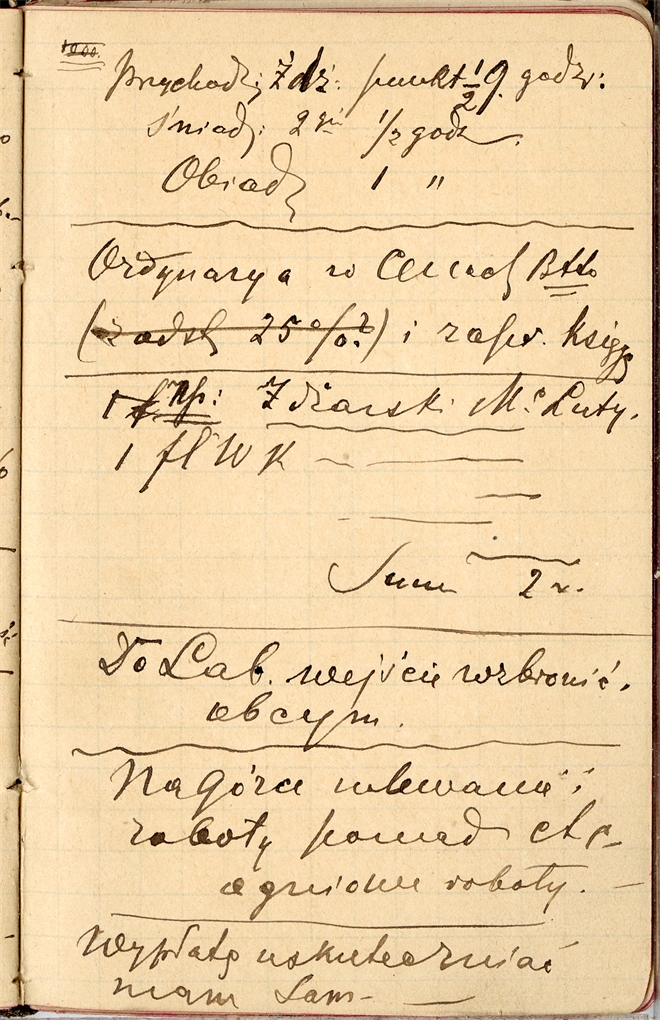 1900.
Przychodz: Zdz: punkt ½ 9. godz:
śniad: 2 gie ½ godz.
Obiad 1 "
Ordynarya w Cenach Btto
(z ads 25 %?) i zapr. księg
1 Np: Zdziarski M. Luty.
1 fl W K
Sum 2 r.
Do Lab. wejście wzbronić.
obcym.
Na górze wlewanie i
roboty ponad
ogniowe roboty.
Wypłatę uskuteczniać
mam Sam